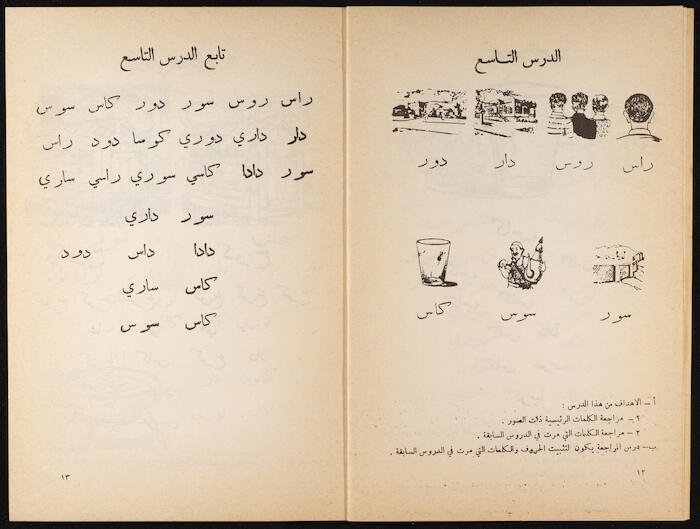 الدرس التاسع
راس روس دار دور
سور سوس كاس
أ ــ الاهداف من هذا الدرس :
٢ ــ مراجعة الكلمات الرئيسية ذات الصور .
٢ ــ مراجعة الكلمات التي مرت في الدروس السابقة .
ب ــ درس المراجعة يكون لتثبيت الحروف والكلمات التي مرت في الدروس السابقة .
١٢
تابع الدرس التاسع
راس روس سور دور كاس سوس
دار داري دوري كوسا دود راس
سور دادا كاسي سوري راسي ساري
سور داري
دادا داس دود
كاس ساري
كاس سوس
١٣